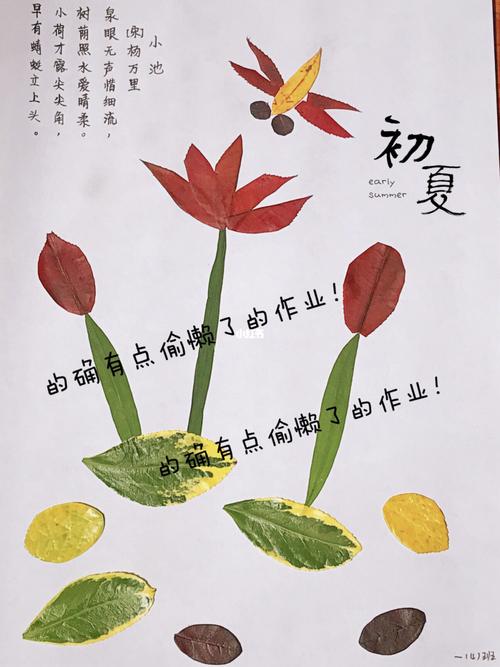 小池
[宋]杨万里
泉眼无声惜细流，
树荫照水爱晴柔。
小荷才露尖尖角，
早有蜻蜓立上头。
初夏
early
summer
的确有点偷懒了的作业！
小红书
的确有点偷懒了的作业！
一（4）班